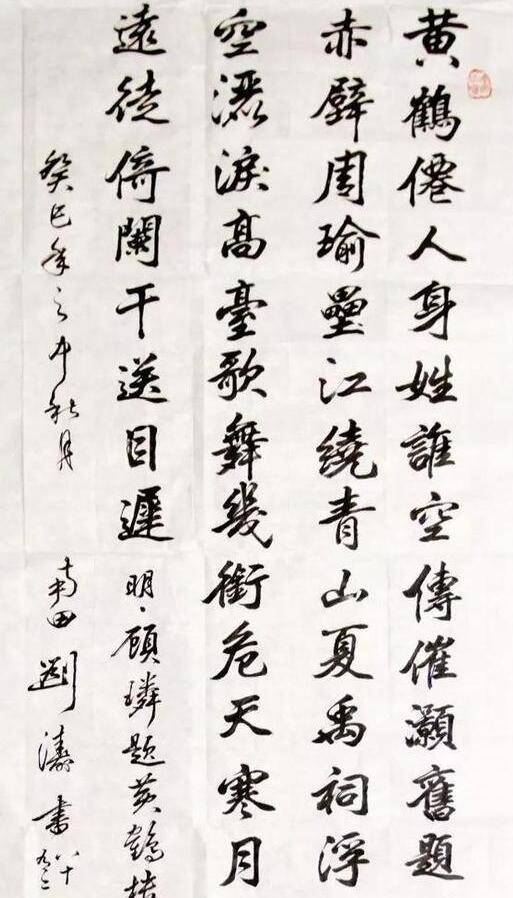 黄鶴僊人身姓誰空傳催灝舊題
赤壁周瑜壘江繞青山夏禹祠浮
空灑淚高臺歌舞幾銜危天寒月
遠徙倚闌干送目遲 明、顾璘題黄鶴楼
癸巳年之中秋月 南田劉濤書 八十